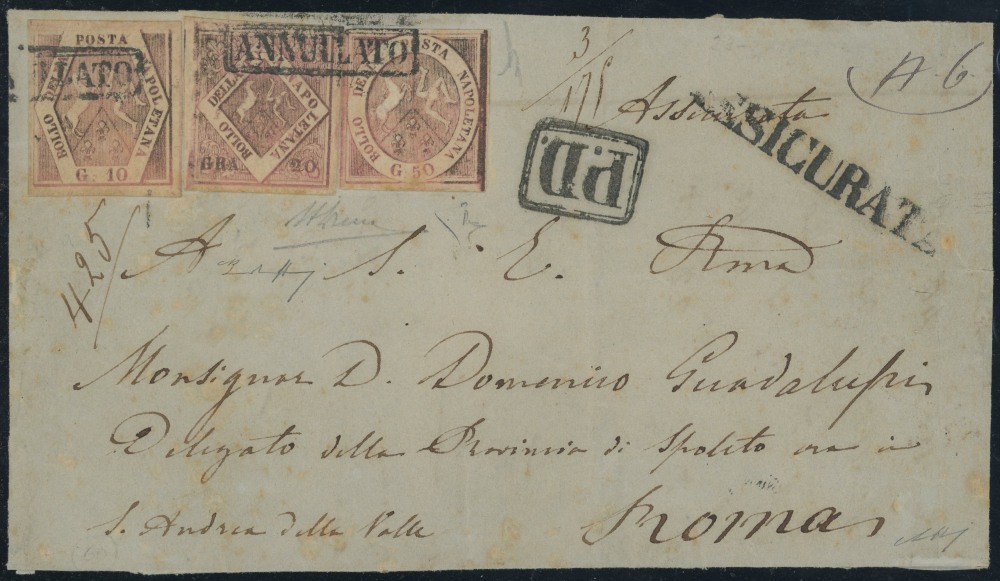 POSTA NAPOLETANA
BOLLO DELLA
G. 10
LATO
BOLLO DELLA
NAPOLETANA
GRA 20
ANNULLATO
BOLLO DELLA POSTA NAPOLETANA
G. 50
3/
Assicurata
A. 6
P.D.
ASSICURATA
425
A S. E. Rma
Monsignor D. Domenico Guadalupi
Delegato della Provincia di Spoleto ora in
S. Andrea della Valle Roma